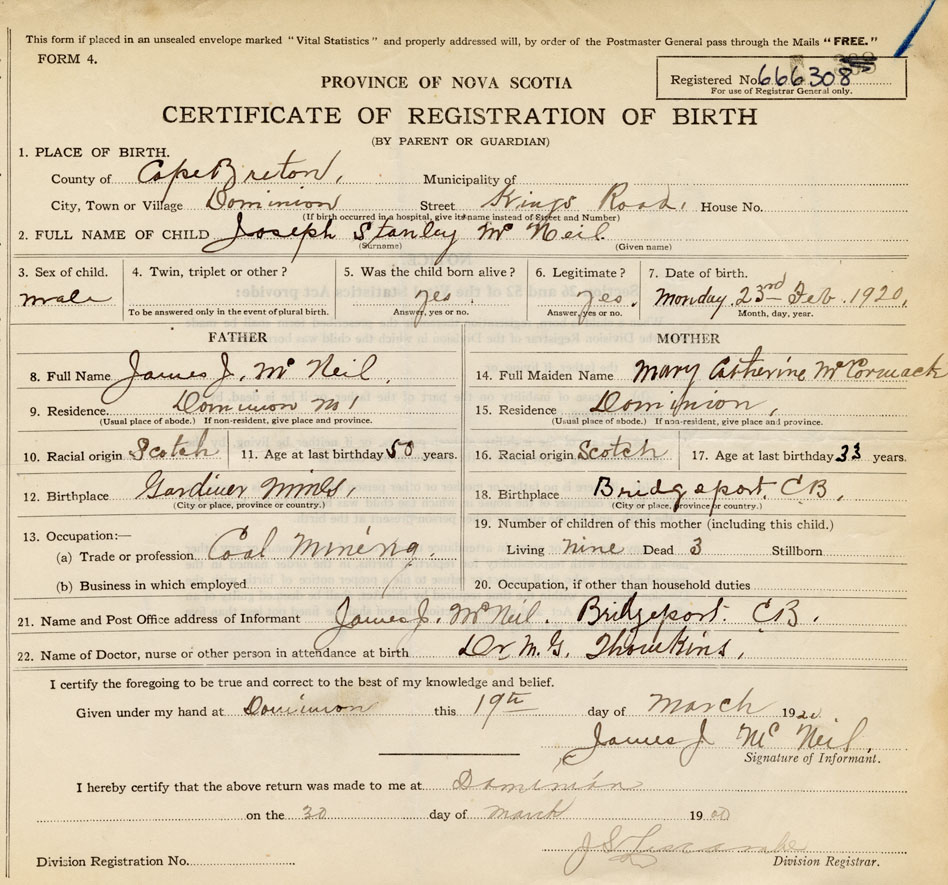 This form if placed in an unsealed envelope marked "Vital Statistics" and properly addressed will, by order of the Postmaster General pass through the Mails "FREE."
FORM 4.
Registered No. 666308
For use of Registrar General only.
PROVINCE OF NOVA SCOTIA
CERTIFICATE OF REGISTRATION OF BIRTH
(BY PARENT OR GUARDIAN)
1. PLACE OF BIRTH.
County of Cape Breton, Municipality of
City, Town or Village Dominion Street Kings Road. House No.
(If birth occurred in a hospital, give its name instead of Street and Number)
2. FULL NAME OF CHILD Joseph Stanley McNeil.
(Surname) (Given name)
3. Sex of child. 4. Twin, triplet or other? 5. Was the child born alive? 6. Legitimate? 7. Date of birth.
male yes. yes. Monday 23rd Feb. 1920.
To be answered only in the event of plural birth. Answer, yes or no. Answer, yes or no. Month, day, year.
FATHER MOTHER
8. Full Name James J. McNeil. 14. Full Maiden Name Mary Catherine McCormack
9. Residence. Dominion No 1 15. Residence Dominion,
(Usual place of abode.) If non-resident, give place and province. (Usual place of abode.) If non-resident, give place and province.
10. Racial origin Scotch 11. Age at last birthday 50 years. 16. Racial origin Scotch 17. Age at last birthday 33 years.
12. Birthplace Gardiner Mines, 18. Birthplace Bridgeport. CB,
(City or place, province or country.) (City or place, province or country.)
13. Occupation:— 19. Number of children of this mother (including this child.)
(a) Trade or profession Coal Mining. Living nine Dead 3 Stillborn
(b) Business in which employed 20. Occupation, if other than household duties
21. Name and Post Office address of Informant James J. McNeil. Bridgeport. CB.
22. Name of Doctor, nurse or other person in attendance at birth Dr M. G.
I certify the foregoing to be true and correct to the best of my knowledge and belief.
Given under my hand at Dominion this 19th day of March 1920
James J McNeil.
Signature of Informant.
I hereby certify that the above return was made to me at Dominion
on the 30 day of March 19
Division Registration No. Division Registrar.